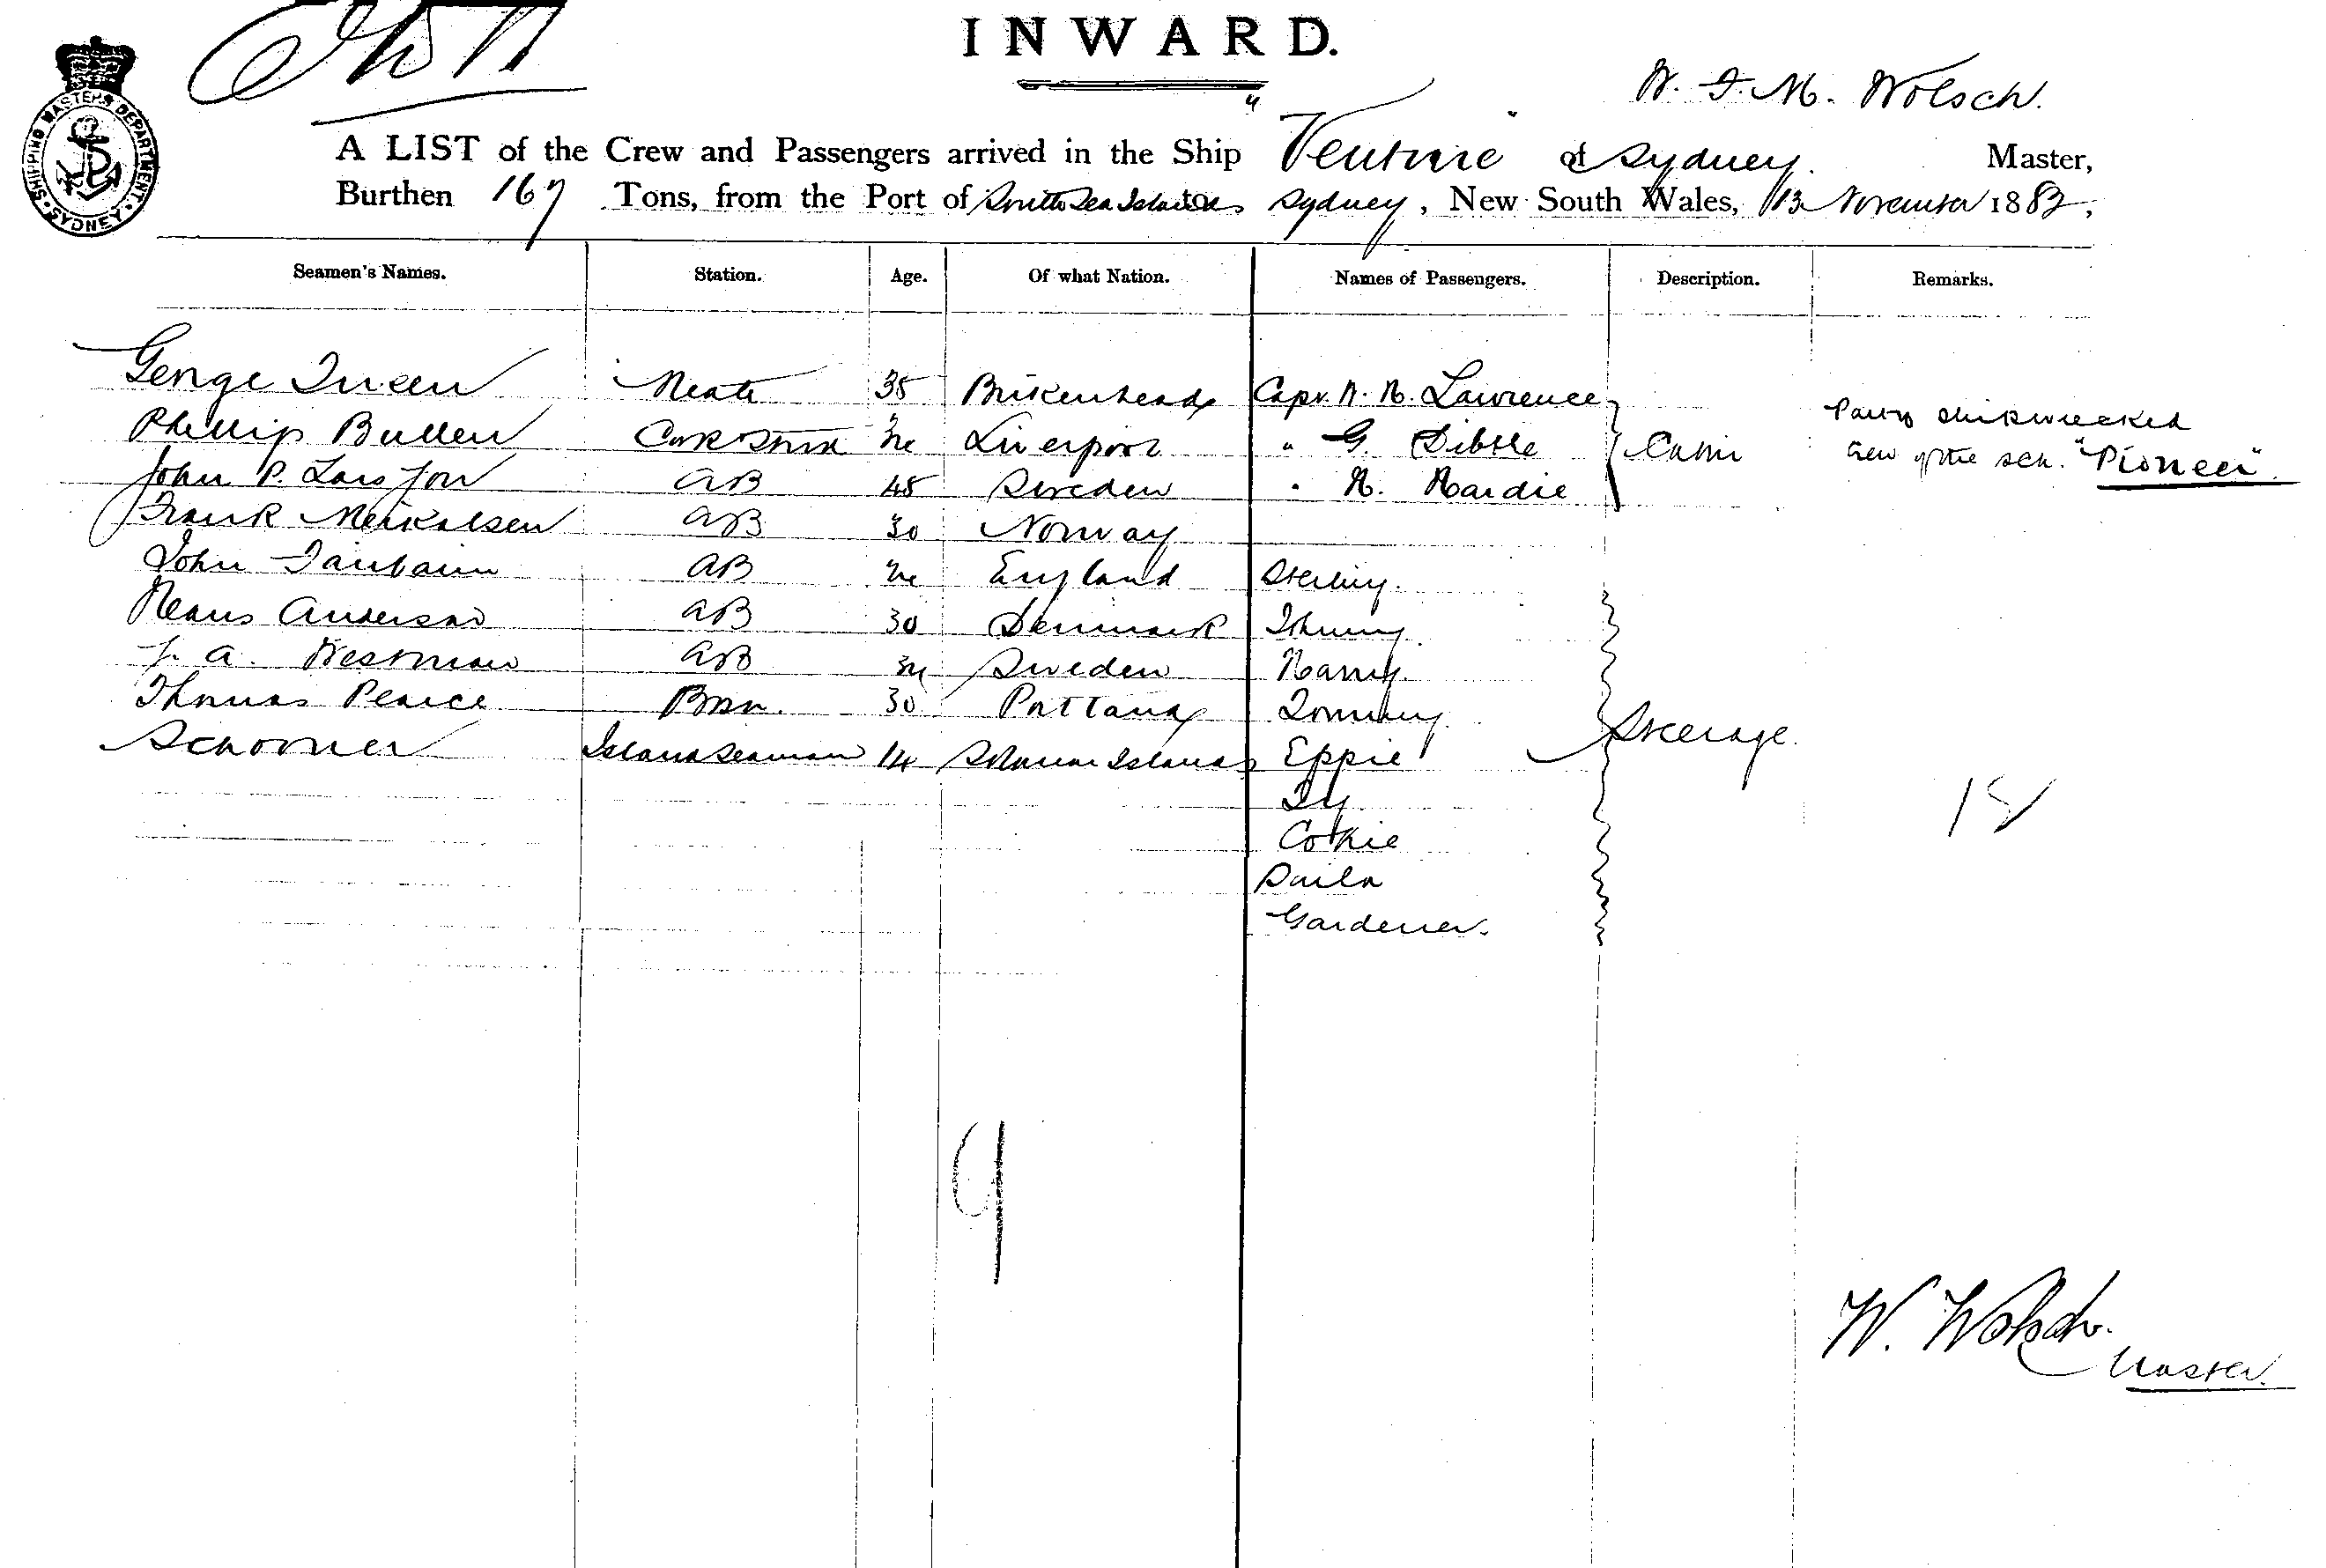 INWARD.
SHIPPING MASTER'S DEPARTMENT. SYDNEY
W. F. M. Wolsch.
A LIST of the Crew and Passengers arrived in the Ship "Venture" of Sydney. Master,
Burthen 167 Tons, from the Port of South Sea Islands to Sydney, New South Wales, 13 November 1882,
Seamen's Names. Station. Age. Of what Nation. Names of Passengers. Description. Remarks.
George Mate 35 Birkenhead Capt. Lawrence
Phillip Bullen Cook & Stwd Liverpool " G. Cabin
Party shipwrecked
crew of the sch. "Pioneer".
John P. AB 45 Sweden " Hardie
Frank AB 30 Norway
John Fairbairn AB England Sterling.
Anderson AB 30 Denmark Johnny.
A. Westman AB Sweden Harry.
Thomas Pearce Bosn. 30 Tommy. Steerage.
Schooner Island Seaman 14 Solomon Islands Eppie
18
Cookie
Gardener.
9
W. Wolsch.
Master.